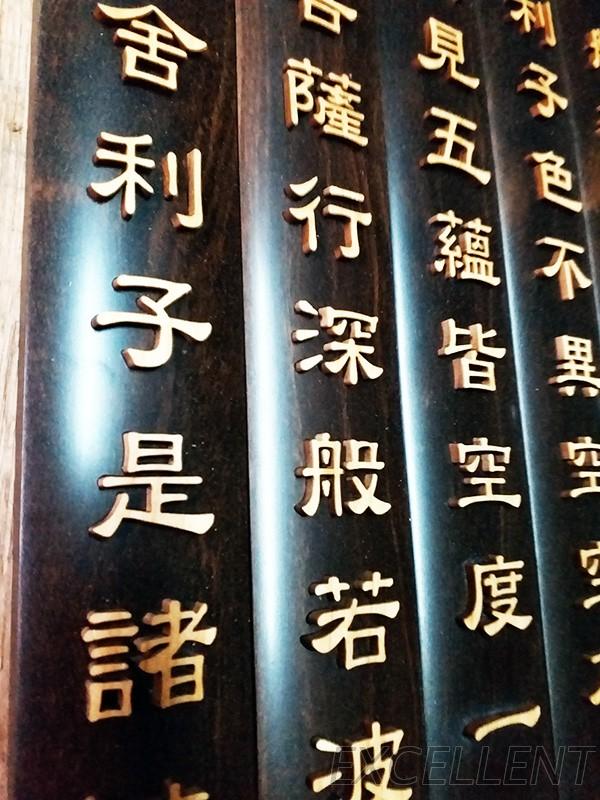 舍利子是諸
薩行深般若波
見五蘊皆空度一
利子色不異空
EXCELLENT